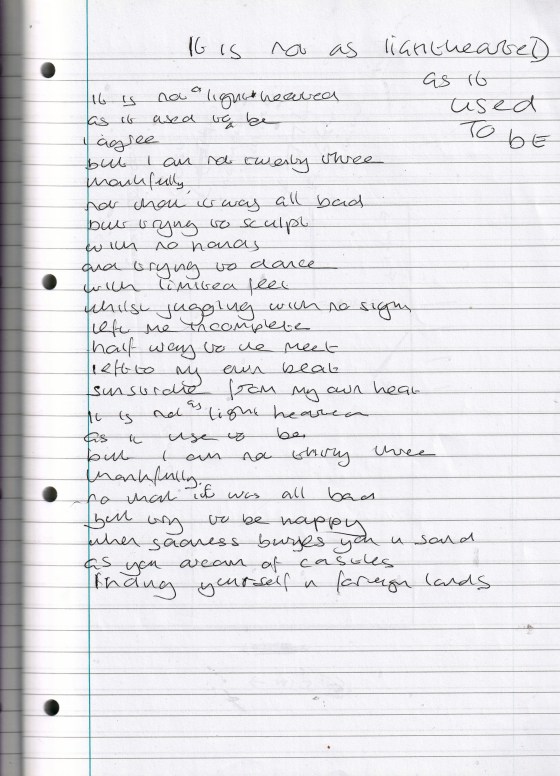 It is not as lighthearted
as it
used
TO
bE
it is not as light hearted
as it used to be
I agree
but I am not twenty three
thankfully,
not that it was all bad
but trying to sculpt
with no hands
and trying to dance
with limited feet
whilst juggling with no sight
left me incomplete
half way to the meet
left to my own beat
sunstroke from my own heat
it is not as light hearted
as it use to be
but I am not thirty three
thankfully.
no that it was all bad
but try to be happy
when sadness buryes you in sand
as you dream of castles
finding yourself in foreign lands